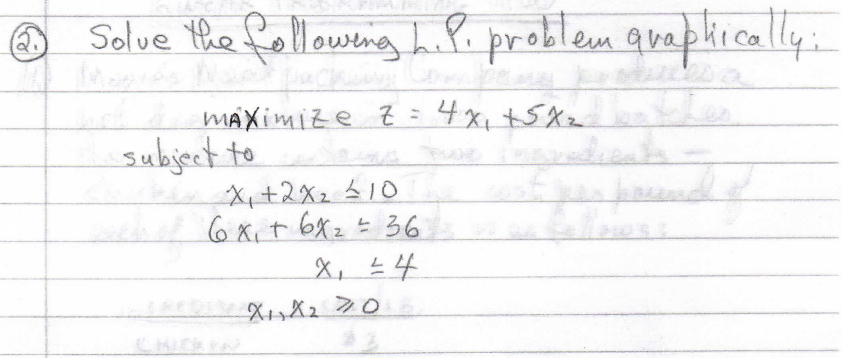 2. Solve the following L.P. problem graphically:
maximize z = 4x₁ + 5x₂
subject to
x₁ + 2x₂ ≤ 10
6x₁ + 6x₂ ≤ 36
x₁ ≤ 4
x₁, x₂ ≥ 0